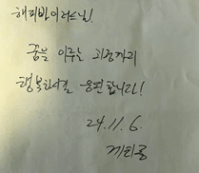 해피바이러스님!
꿈을 이루는 그날까지
행복하시길 응원합니다!
24.11.6.